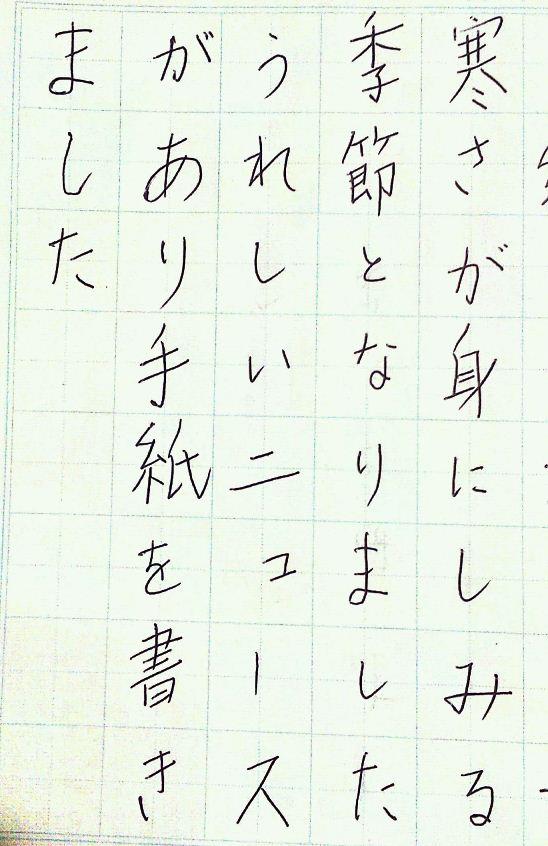 寒さが身にしみる
季節となりました
うれしいニュース
があり手紙を書き
ました